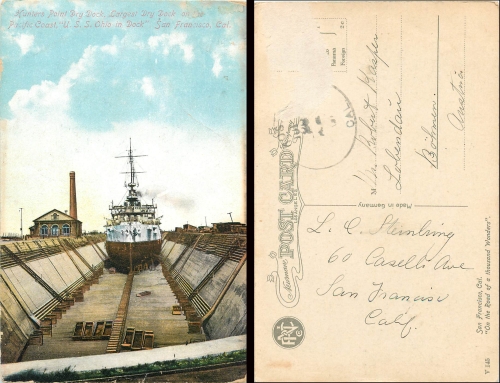 Hunters Point Dry Dock, Largest Dry Dock on the
Pacific Coast, "U. S. S. Ohio in Dock" San Francisco, Cal.
Domestic
Foreign
CAL
Robert Kasper
Lobendau
Böhmen.
Austria
POST CARD
Made in Germany
L. C. Steinburg
60 Caselli Ave
San Francisco
Calif.
San Francisco, Cal.
"On the Road of a thousand Wonders".